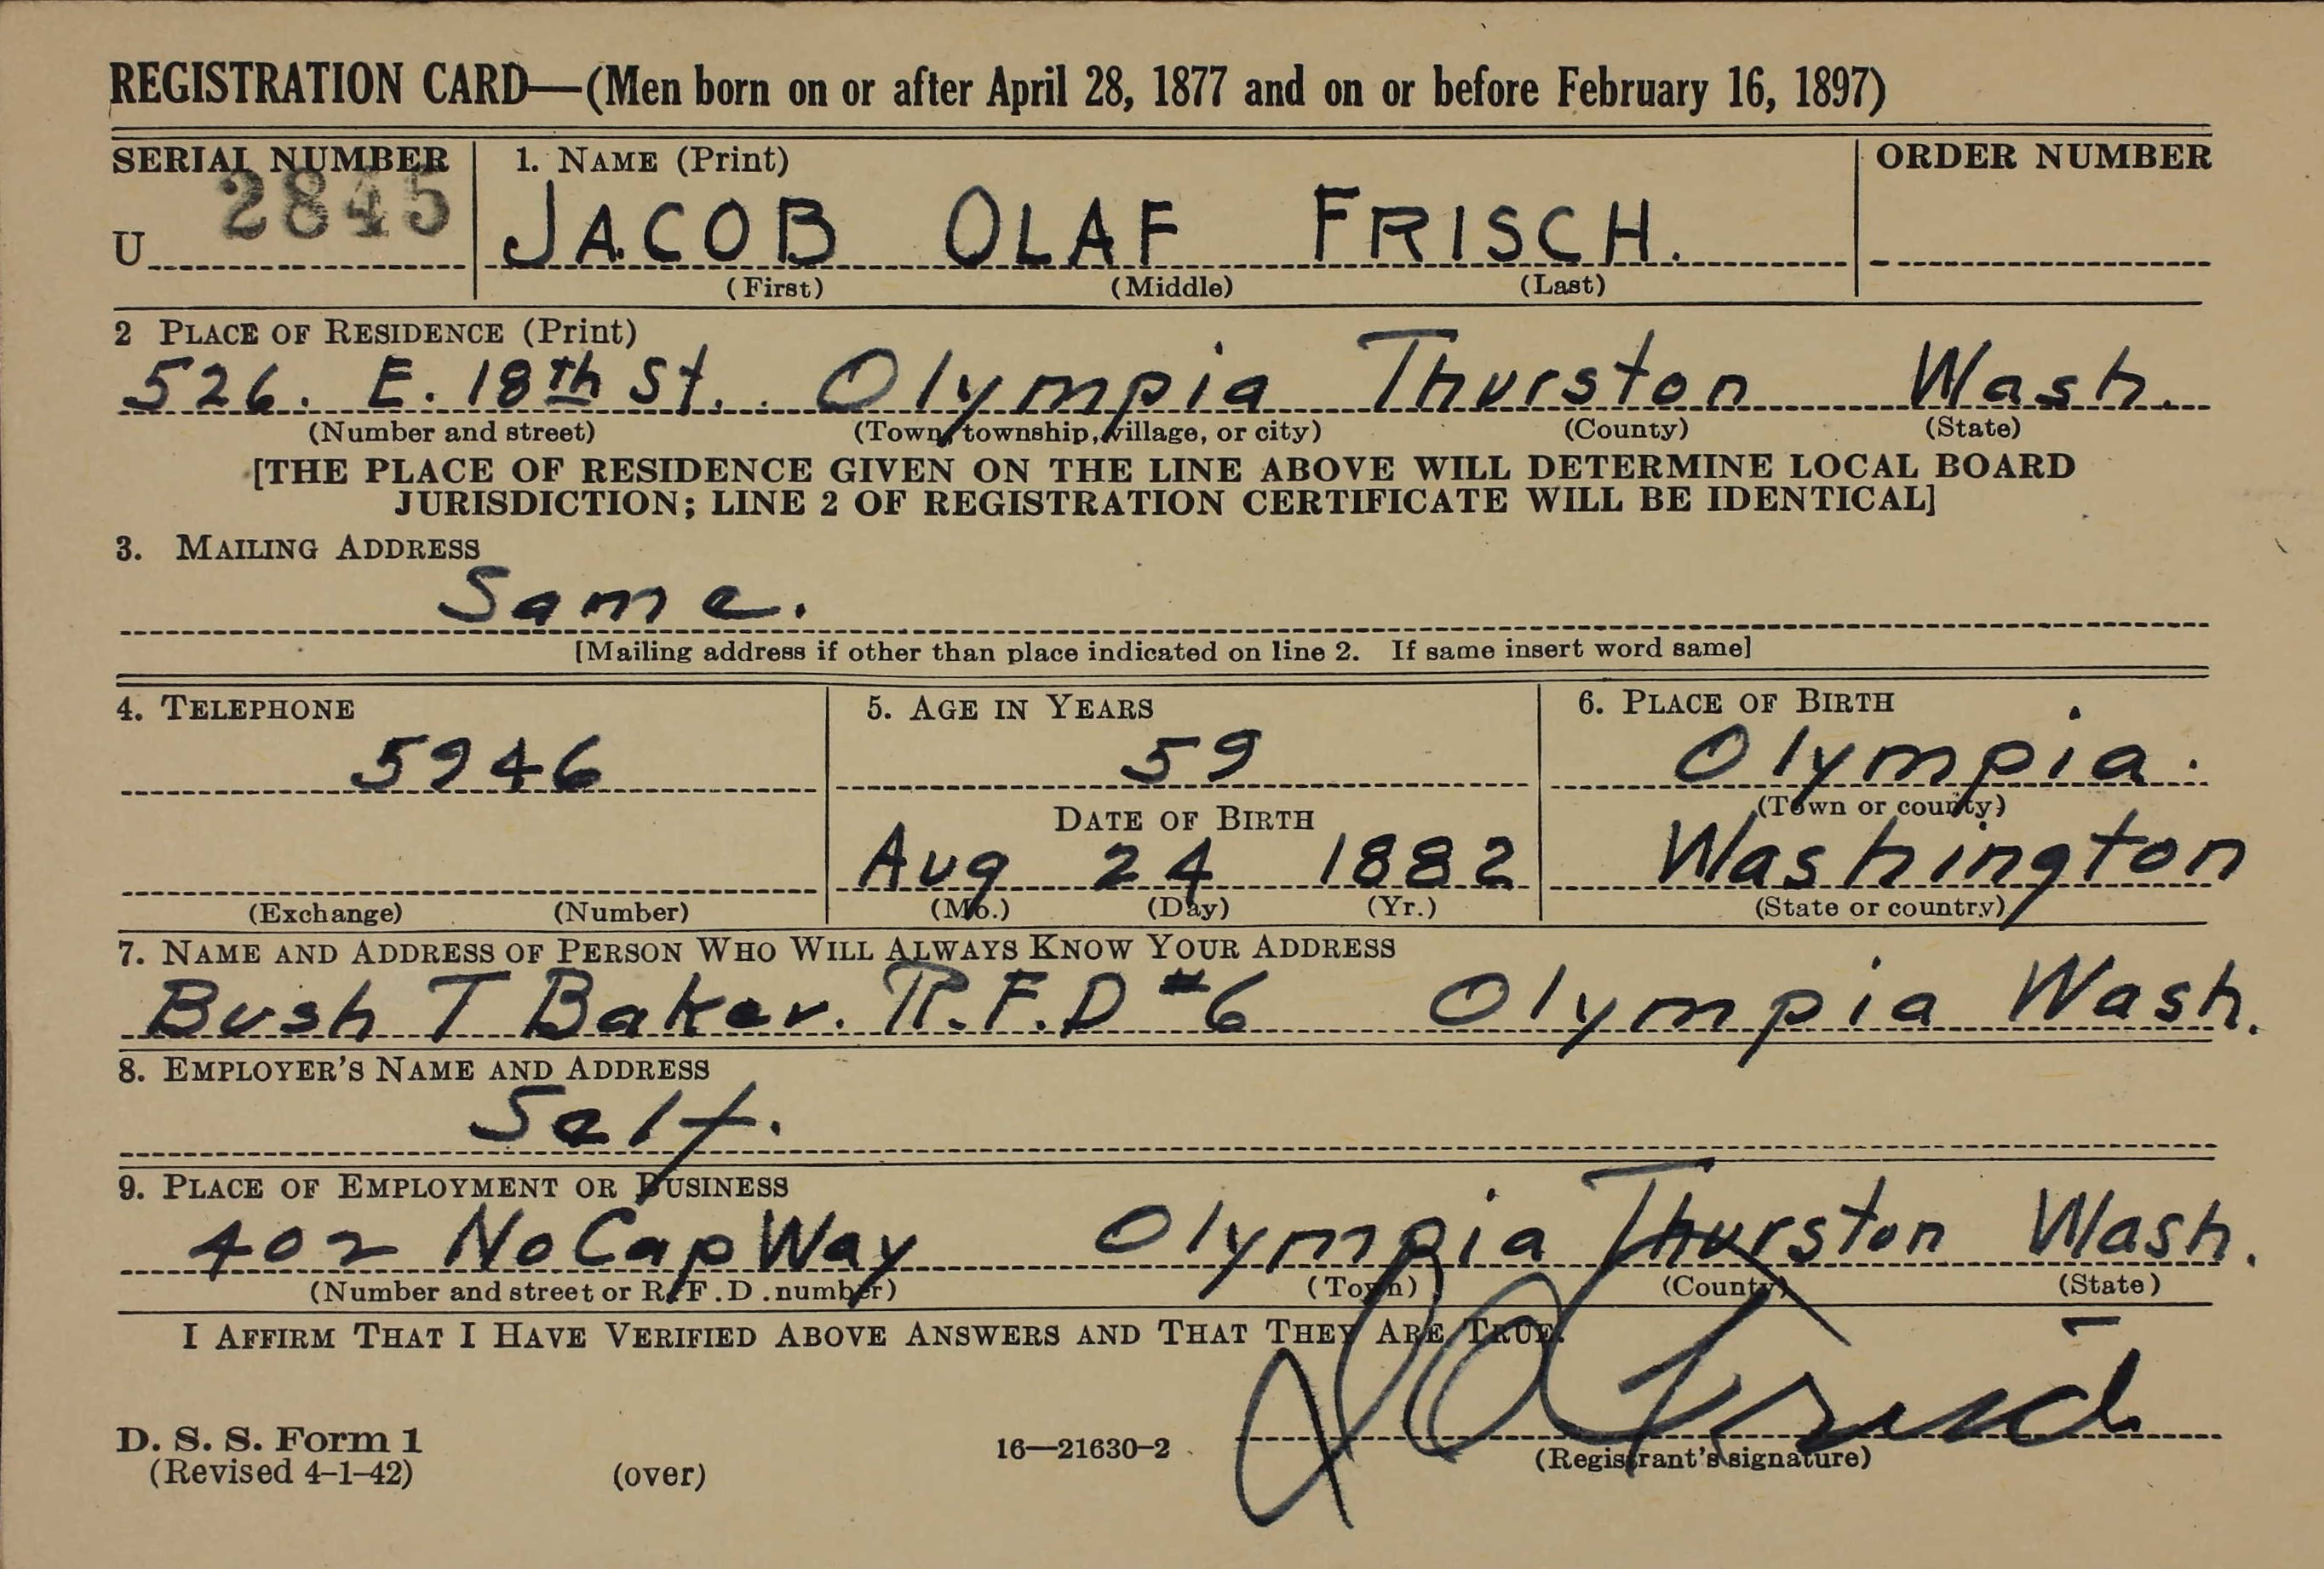 REGISTRATION CARD—(Men born on or after April 28, 1877 and on or before February 16, 1897)
SERIAL NUMBER
1. NAME (Print)
ORDER NUMBER
U 2845
JACOB OLAF FRISCH.
(First) (Middle) (Last)
2 PLACE OF RESIDENCE (Print)
526. E. 18th St. Olympia Thurston Wash.
(Number and street) (Town, township, village, or city) (County) (State)
[THE PLACE OF RESIDENCE GIVEN ON THE LINE ABOVE WILL DETERMINE LOCAL BOARD
JURISDICTION; LINE 2 OF REGISTRATION CERTIFICATE WILL BE IDENTICAL]
3. MAILING ADDRESS
Same.
[Mailing address if other than place indicated on line 2. If same insert word same]
4. TELEPHONE
5946
(Exchange) (Number)
5. AGE IN YEARS
59
DATE OF BIRTH
Aug 24 1882
(Mo.) (Day) (Yr.)
6. PLACE OF BIRTH
Olympia.
(Town or county)
Washington
(State or country)
7. NAME AND ADDRESS OF PERSON WHO WILL ALWAYS KNOW YOUR ADDRESS
Bush T Baker. R.F.D #6 Olympia Wash.
8. EMPLOYER'S NAME AND ADDRESS
Self.
9. PLACE OF EMPLOYMENT OR BUSINESS
402 No Cap Way Olympia Thurston Wash.
(Number and street or R. F. D. number) (Town) (County) (State)
I AFFIRM THAT I HAVE VERIFIED ABOVE ANSWERS AND THAT THEY ARE TRUE.
J O Frisch
D. S. S. Form 1
(Revised 4-1-42) (over) 16—21630-2 (Registrant's signature)